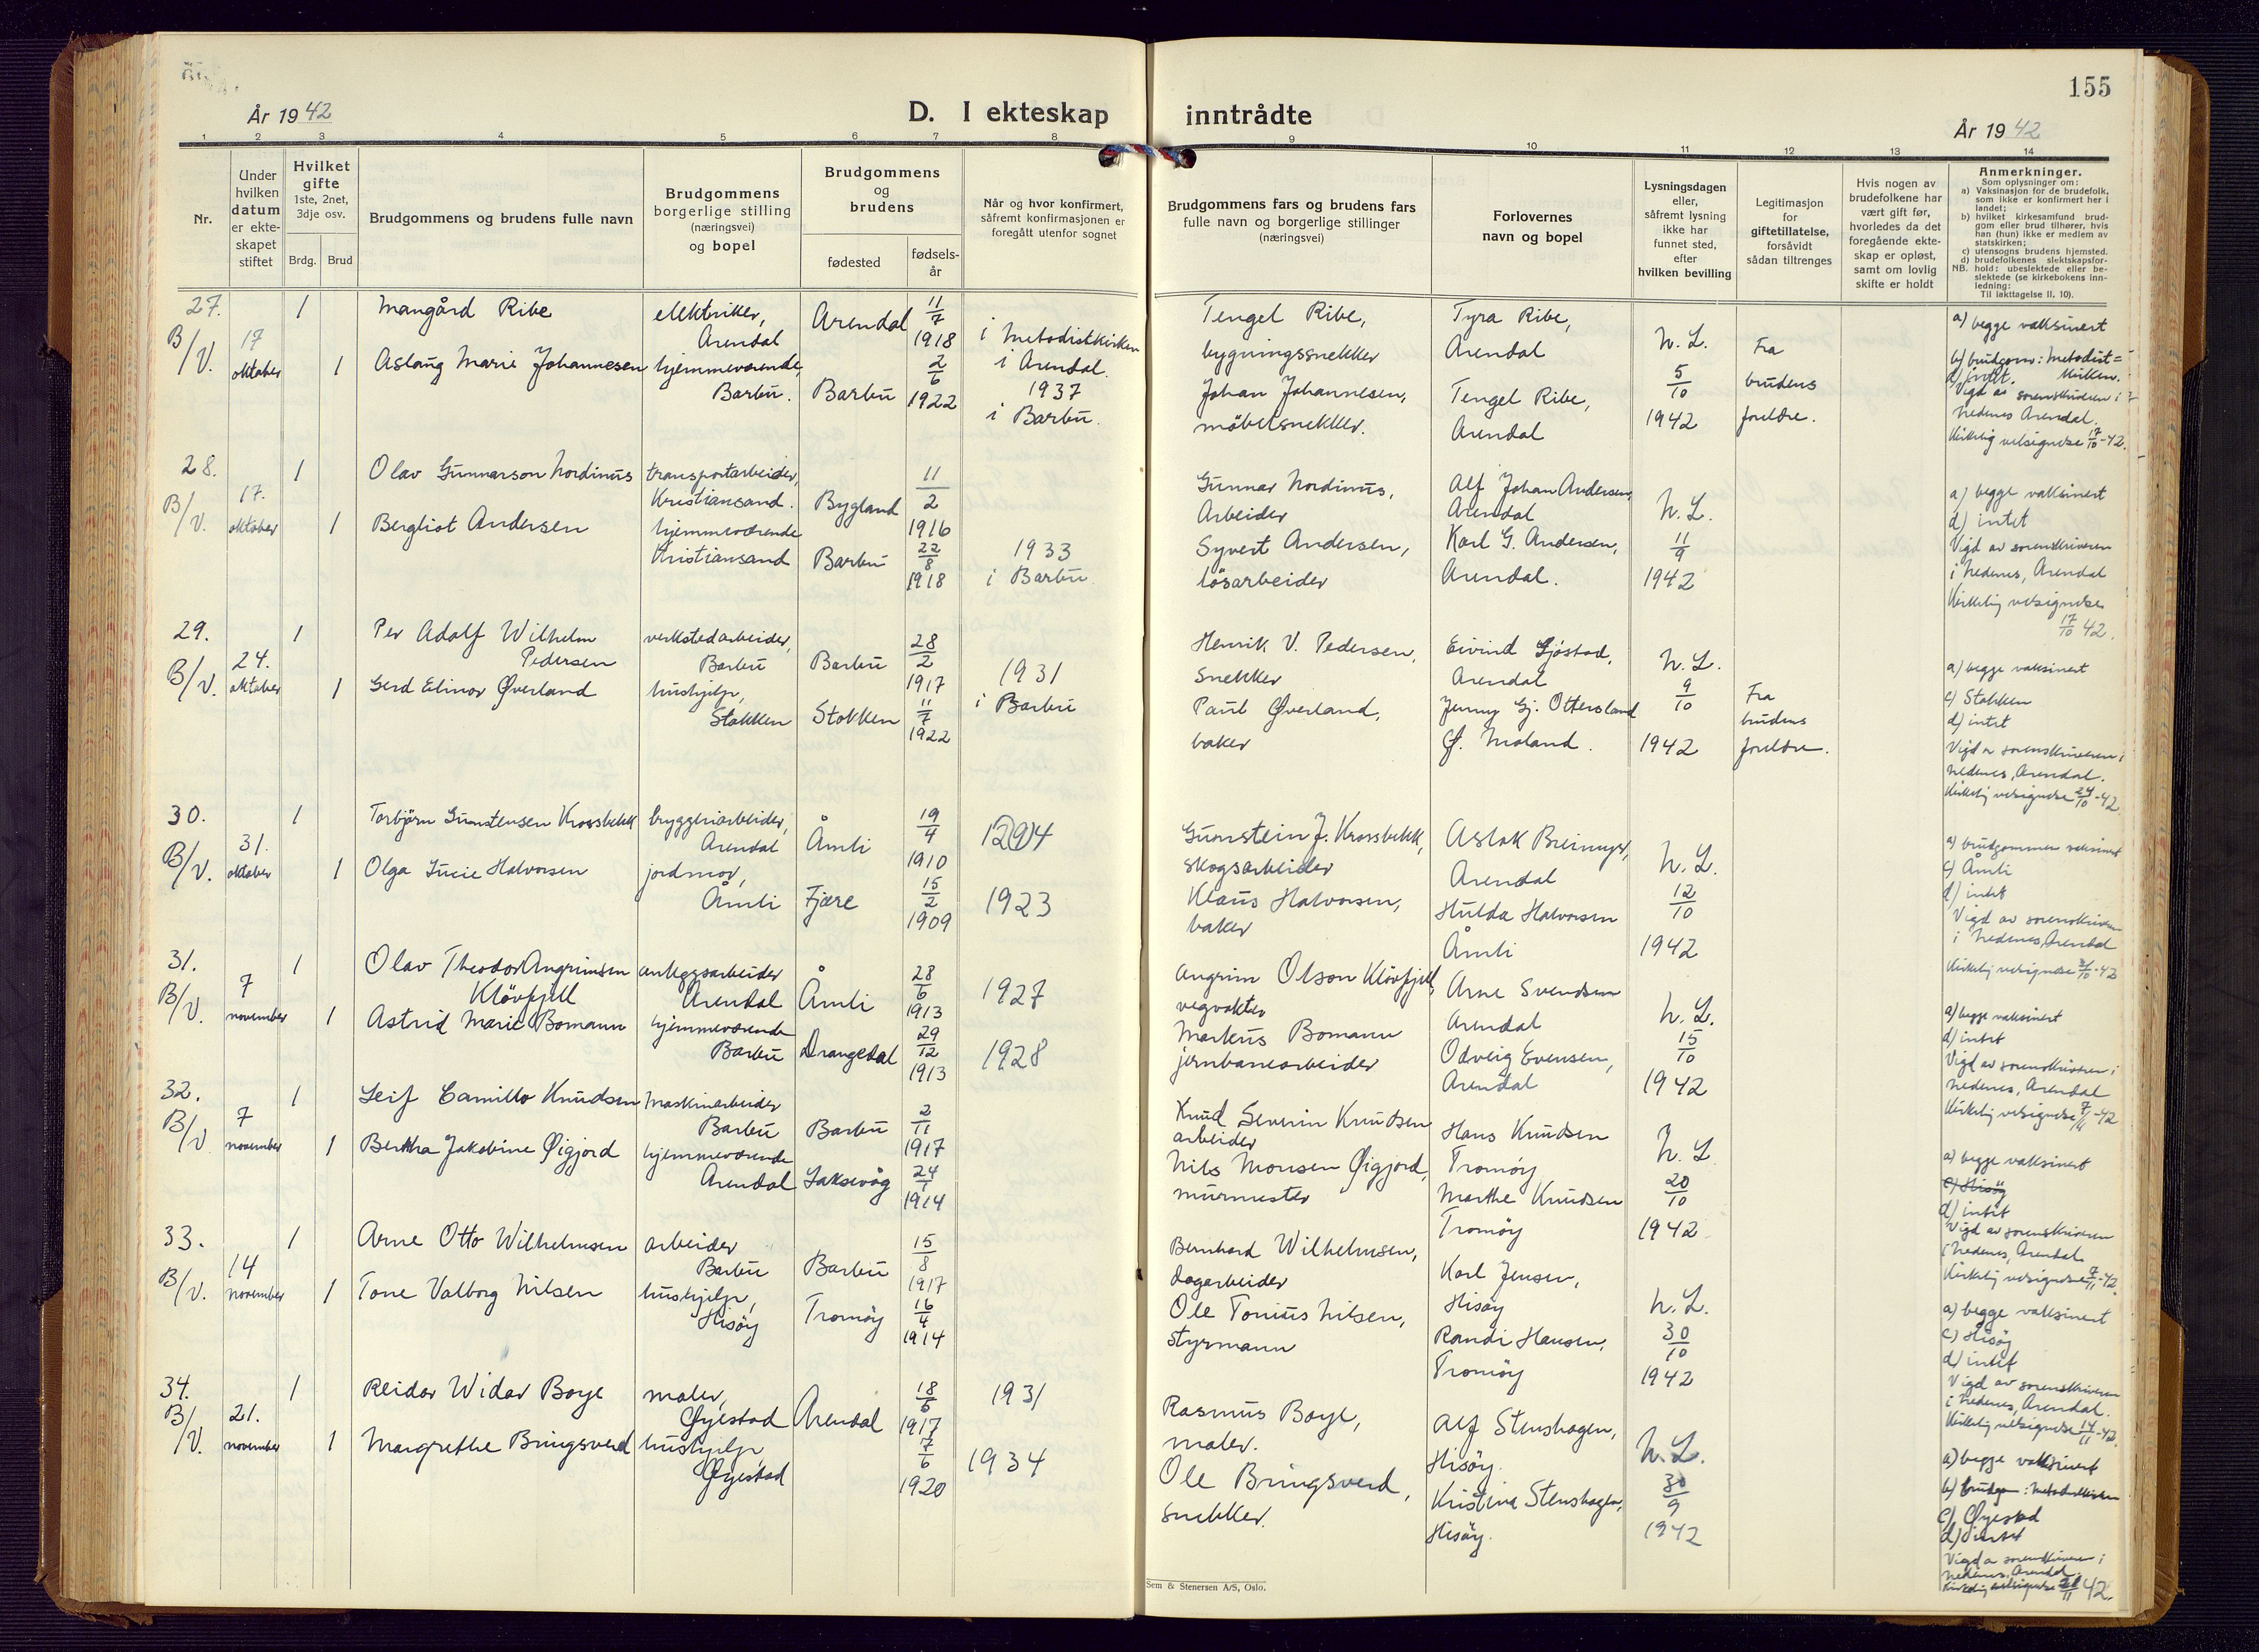 155
År 1942
D. I ekteskap inntrådte
År 1942
1 2 3 4 5 6 7 8 9 10 11 12 13 14
Nr.
Under hvilken datum er ekteskapet stiftet
Hvilket gifte 1ste, 2net, 3dje osv.
Brdg. Brud
Brudgommens og brudens fulle navn
Brudgommens borgerlige stilling (næringsvei) og bopel
Brudgommens og brudens
fødested
fødselsår
Når og hvor konfirmert, såfremt konfirmasjonen er foregått utenfor sognet
Brudgommens fars og brudens fars fulle navn og borgerlige stillinger (næringsvei)
Forlovernes navn og bopel
Lysningsdagen eller, såfremt lysning ikke har funnet sted, efter hvilken bevilling
Legitimasjon for giftetillatelse, forsåvidt sådan tiltrenges
Hvis nogen av brudefolkene har vært gift før, hvorledes da det foregående ekteskap er opløst, samt om lovlig skifte er holdt
Anmerkninger.
Som oplysninger om:
a) Vaksinasjon for de brudefolk, som ikke er konfirmert her i landet;
b) hvilket kirkesamfund brudgom eller brud tilhører, hvis han (hun) ikke er medlem av statskirken;
c) utensogns brudens hjemsted.
d) brudefolkenes slektskapsforhold: ubeslektede eller beslektede (se kirkebokens innledning:
NB.
Til iakttagelse II, 10).
27. B/V. 17 oktober 1 1
Mangård Ribe
elektriker, Arendal
Arendal
11/7 1918
i Metodistkirken i Arendal.
Aslaug Marie Johannesen
hjemmeværende, Barbu.
Barbu
2/6 1922
1937 i Barbu.
Tengel Ribe, bygningssnekker
Johan Johannesen, møbelsnekker.
Tyra Ribe, Arendal
Tengel Ribe, Arendal
h. L. 5/10 1942
Fra brudens foreldre.
a) begge vaksinert
b) brudgom: Metodistkirken.
d) intet.
Vigd av sorenskriveren i Nedenes Arendal.
Kirkelig velsignelse 17/10-42.
28. B/V. 17. oktober 1 1
Olav Gunnarson Nordinus
transportarbeider, Kristiansand.
Bygland
11/2 1916
Bergliot Andersen
hjemmeværende Kristiansand
Barbu
22/8 1918
1933 i Barbu.
Gunnar Nordinus, Arbeider
Syvert Andersen, løsarbeider
Alf Johan Andersen, Arendal
Karl G. Andersen, Arendal.
h. L. 11/9 1942
a) begge vaksinert
d) intet
Vigd av sorenskriveren i Nedenes, Arendal
Kirkelig velsignelse 17/10 42.
29. B/V. 24. oktober 1 1
Per Adolf Wilhelm Pedersen
verkstedarbeider, Barbu
Barbu
28/2 1917
1931 i Barbu
Gerd Elinor Øverland
hushjelp, Stokken
Stokken
11/7 1922
Henrik V. Pedersen, snekker
Paul Øverland, baker
Eivind Sjøstad, Arendal
Jenny Gj. Ottersland Ø. Moland.
h. L. 9/10 1942
Fra brudens foreldre.
a) begge vaksinert
c) Stokken
d) intet
Vigd av sorenskriveren i Nedenes, Arendal.
Kirkelig velsignelse 24/10-42
30. B/V. 31. oktober 1 1
Torbjørn Gunstensen Krossbekk
bryggeriarbeider, Arendal
Åmli
19/4 1910
Olga Lucie Halvorsen
jordmor, Åmli
Fjære
15/2 1909
1923
Gunstein J. Krossbekk, skogsarbeider
Klaus Halvorsen, baker
Aslak Breimyr, Arendal
Hulda Halvorsen Åmli
h. L. 12/10 1942
a) brudgommen vaksinert
c) Åmli
d) intet
Vigd av sorenskriveren i Nedenes, Arendal
Kirkelig velsignelse 31/10-42
31. B/V. 7 november 1 1
Olav Theodor Angrimsen Kløvfjell
anleggsarbeider Arendal
Åmli
28/6 1913
1927
Astrid Marie Bomann
hjemmeværende Barbu
Drangedal
29/12 1913
1928
Angrim Olson Kløvfjell, vegvokter
Markus Bomann jernbanearbeider
Arne Svendsen Arendal
Odveig Evensen, Arendal
h. L. 15/10 1942
a) begge vaksinert
d) intet
Vigd av sorenskriveren i Nedenes, Arendal
Kirkelig velsignelse 7/11-42
32. B/V 7 november 1 1
Leif Camillo Knudsen
Maskinarbeider Barbu
Barbu
2/11 1917
Bertha Jakobine Øigjord
hjemmeværende Arendal
Laksevåg
24/1 1914
Knud Severin Knudsen arbeider
Nils Monsen Øigjord, murmester
Hans Knudsen Tromøy
Marthe Knudsen Tromøy
h. L 20/10 1942
a) begge vaksinert
c) Hisøy
d) intet
Vigd av sorenskriveren i Nedenes, Arendal
Kirkelig velsignelse 7/11-42.
33. B/V. 14 november 1 1
Arne Otto Wilhelmsen
arbeider Barbu
Barbu
15/8 1917
Tone Valborg Nilsen
hushjelp, Hisøy
Tromøy
16/4 1914
Bernhard Wilhelmsen, dagarbeider
Ole Tonius Nilsen, styrmann
Karl Jensen, Hisøy
Randi Hansen, Tromøy
h. L. 30/10 1942
a) begge vaksinert
c) Hisøy
d) intet
Vigd av sorenskriveren i Nedenes, Arendal.
Kirkelig velsignelse 14/11-42.
34. B/V. 21. november 1 1
Reidar Widar Boye
maler, Øyestad
Arendal
18/6 1917
1931
Margrethe Bringsverd
hushjelp, Øyestad
7/6 1920
1934
Rasmus Boye, maler.
Ole Bringsverd, snekker.
Alf Stenshagen, Hisøy.
Kristine Stenshagen, Hisøy.
h. L. 30/9 1942
a) begge vaksinert
b) brudgom: Metodistkirken
c) Øyestad
d) intet
Vigd av sorenskriveren i Nedenes, Arendal.
Kirkelig velsignelse 21/11 42.
Sem & Stenersen A/S, Oslo.